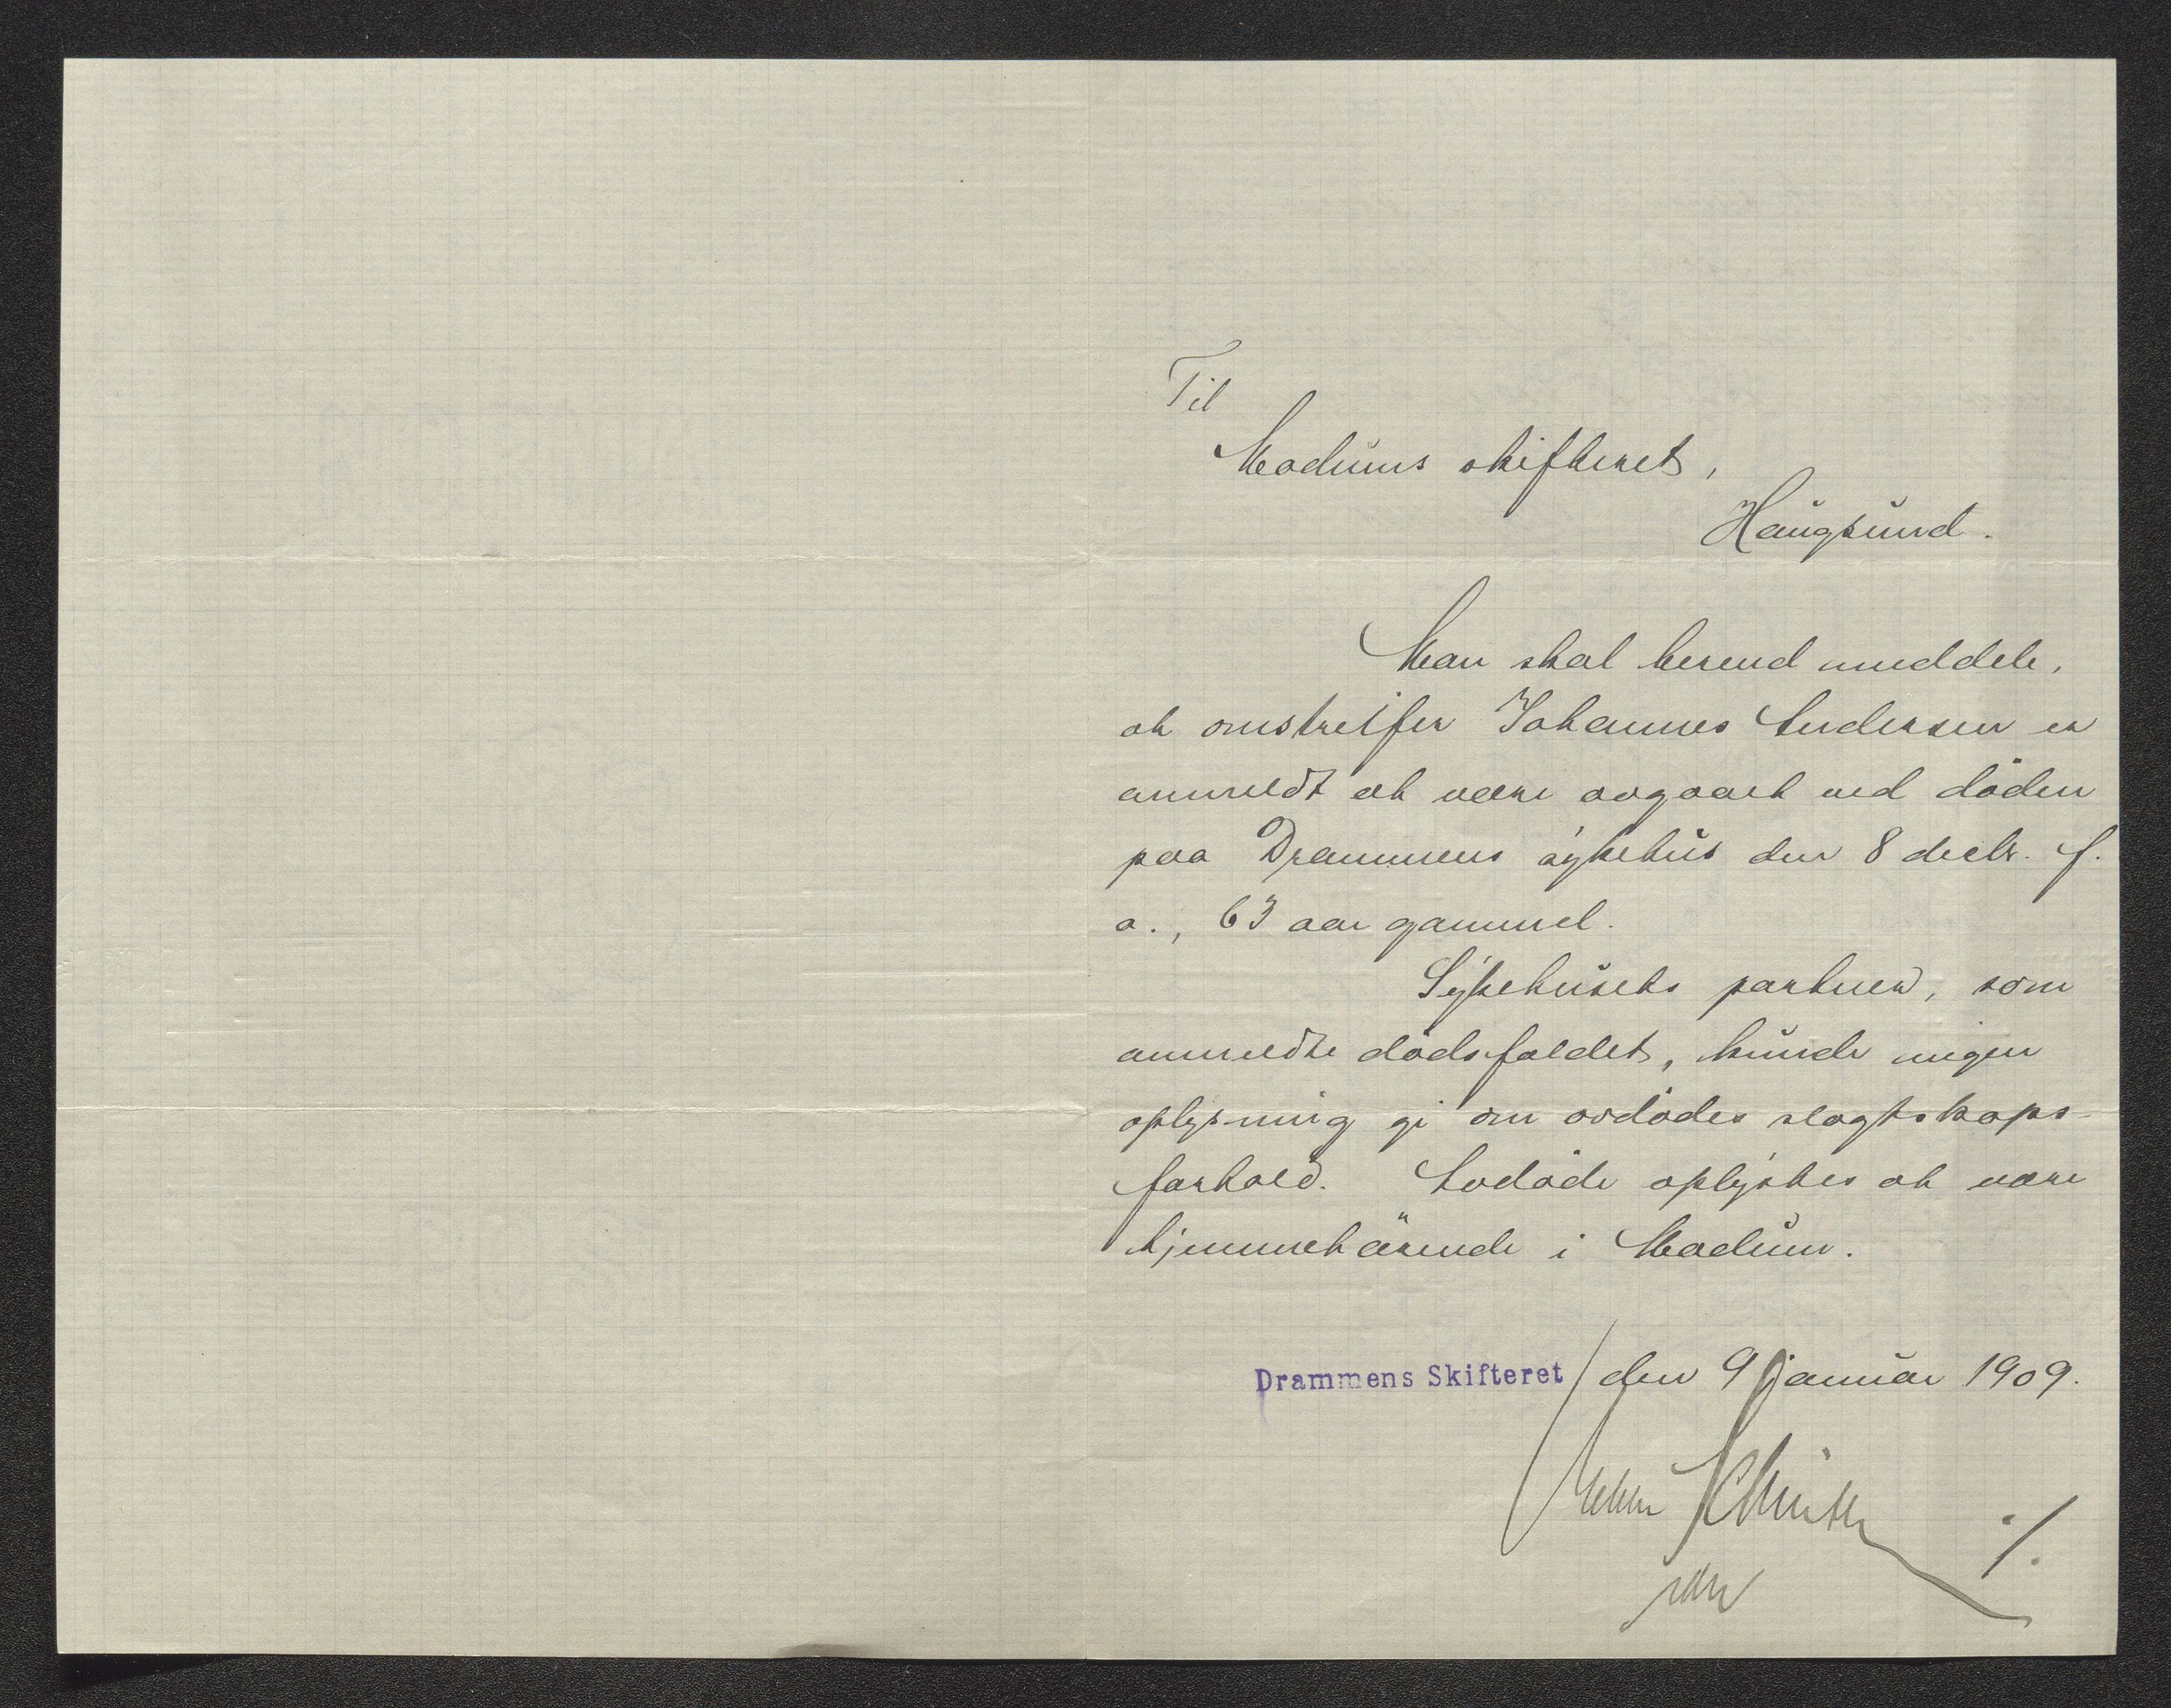 Til
Modums skifteret,
Haugsund.
Man skal herved meddele,
at omstreifer Johannes Andersen er
anmeldt at være avgaaet ved döden
paa Drammens sykehus den 8 decbr. f.
a., 63 aar gammel.
Sykehusets portner, som
anmeldte dödsfaldet, kunde ingen
oplysning gi om avdödes slagtskaps-
forhold. Avdöde oplystes at være
hjemmehörende i Modum.
Drammens Skifteret den 9 januar 1909.